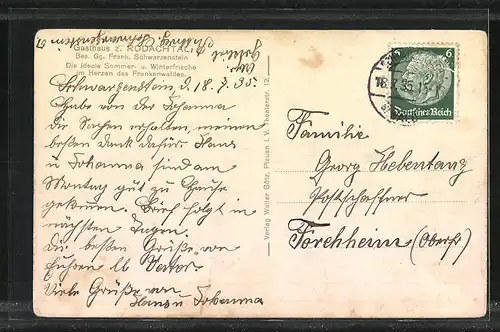 Gasthaus z. RODACHTAL
Bes. Gg. Frank. Schwarzenstein
Die ideale Sommer- u. Winterfrische
im Herzen des Frankenwaldes.
Schwarzenstein, d. 18. 7. 35.
Habe von der Johanna
die Sachen erhalten, meinen
besten Dank dafür. Hans
u Johanna sind am
Montag gut zu Hause
gekommen. Brief folgt in
nächsten Tagen.
Die besten Grüße von
Eurem lb Vater.
Viele Grüße von
Hans u Johanna
Verlag Walter Götz, Plauen i. V. Theaterstr. 12.
6
Deutsches Reich
Familie
Georg Hebentanz
Postschaffner
Forchheim (Oberfr)